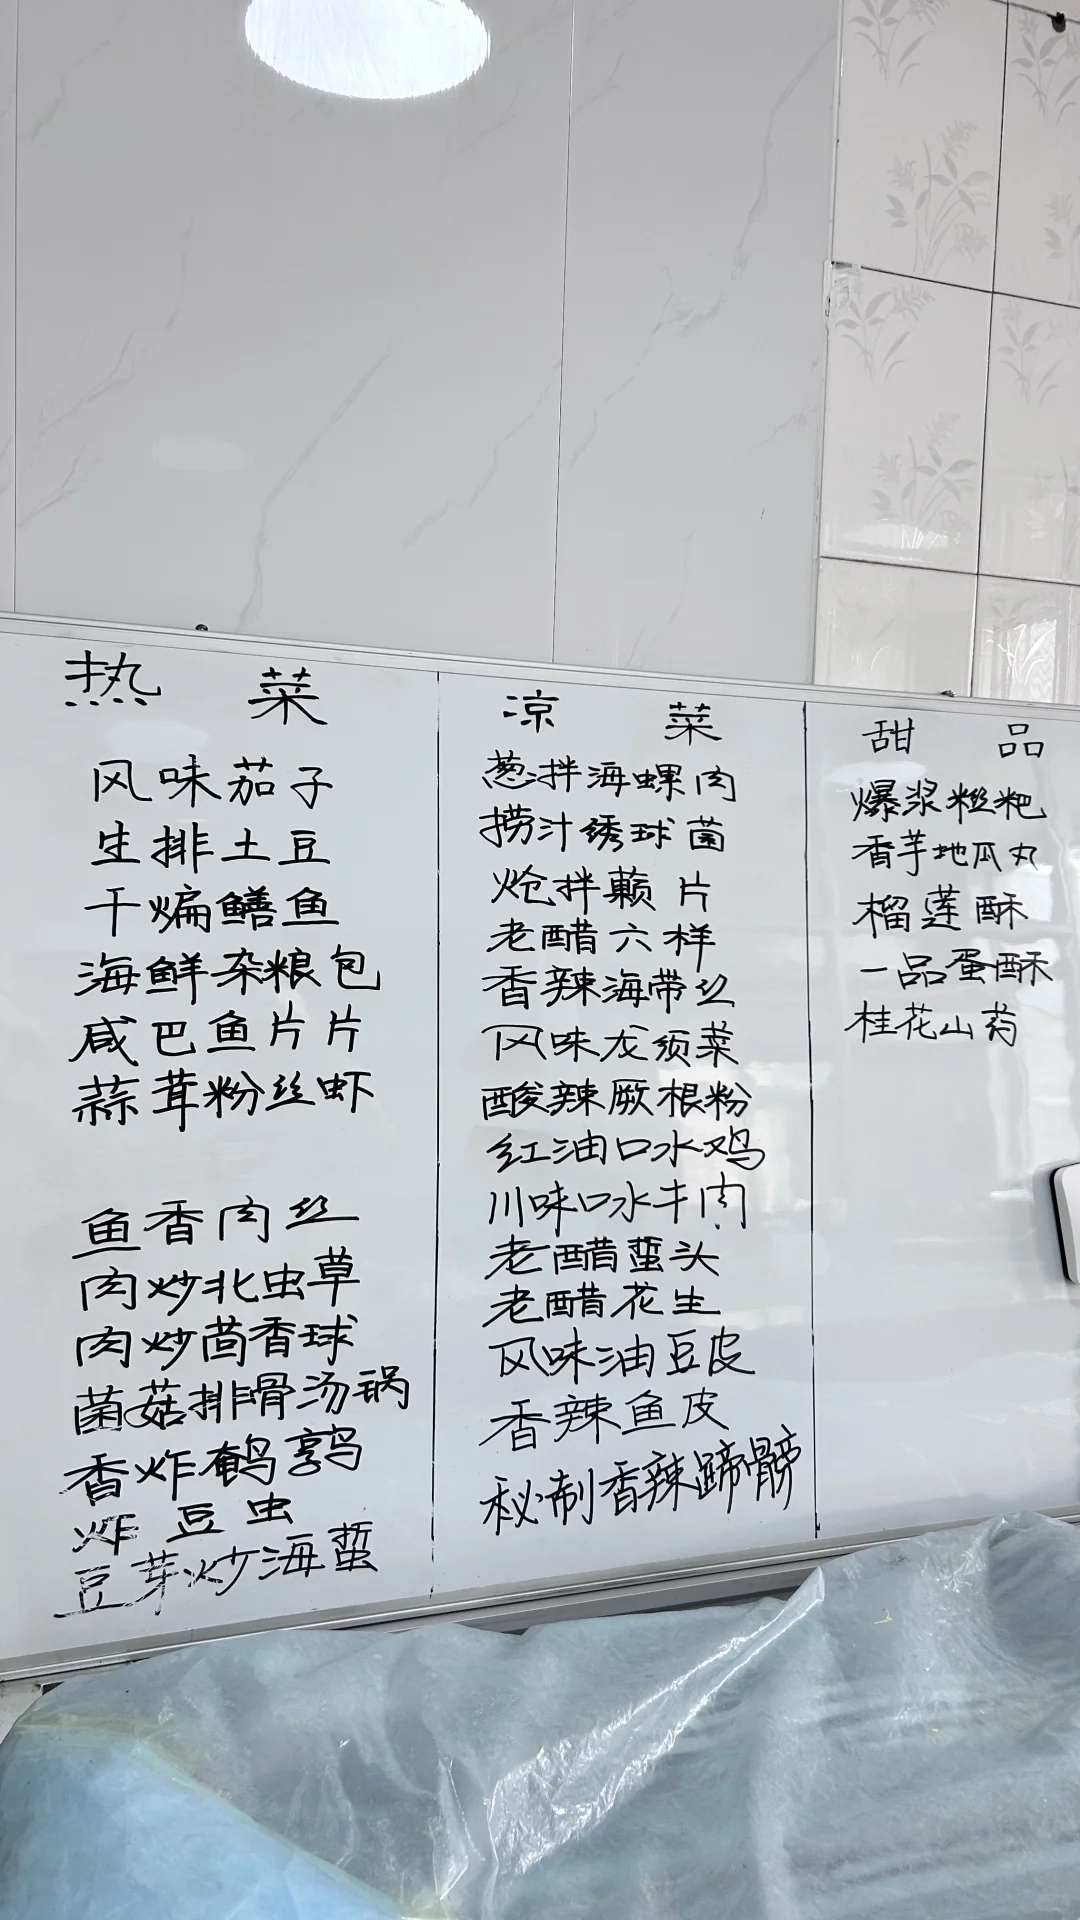 热菜
风味茄子
生排土豆
干煸鳝鱼
海鲜杂粮包
咸巴鱼片片
蒜茸粉丝虾
鱼香肉丝
肉炒北虫草
肉炒茴香球
菌菇排骨汤锅
香炸鹌鹑
炸豆虫
豆芽炒海蜇
凉菜
葱拌海螺肉
捞汁绣球菌
炝拌藾片
老醋六样
香辣海带丝
风味龙须菜
酸辣厥根粉
红油口水鸡
川味口水牛肉
老醋蜇头
老醋花生
风味油豆皮
香辣鱼皮
秘制香辣蹄髈
甜品
爆浆糍粑
香芋地瓜丸
榴莲酥
一品蛋酥
桂花山药